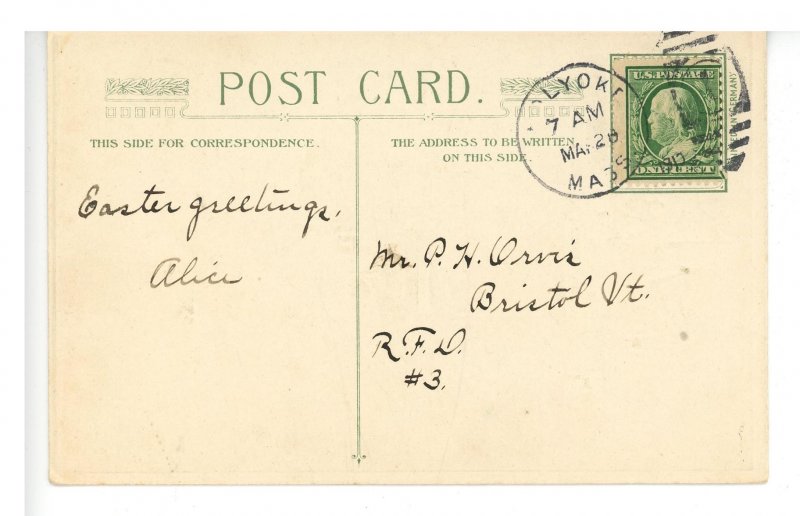 POST CARD.
THIS SIDE FOR CORRESPONDENCE.
THE ADDRESS TO BE WRITTEN
ON THIS SIDE.
U.S. POSTAGE
7 AM
MAR 28
MASS
Easter greetings.
Alice
Mr. P. H. Orvis
Bristol Vt.
R.F.D.
#3.